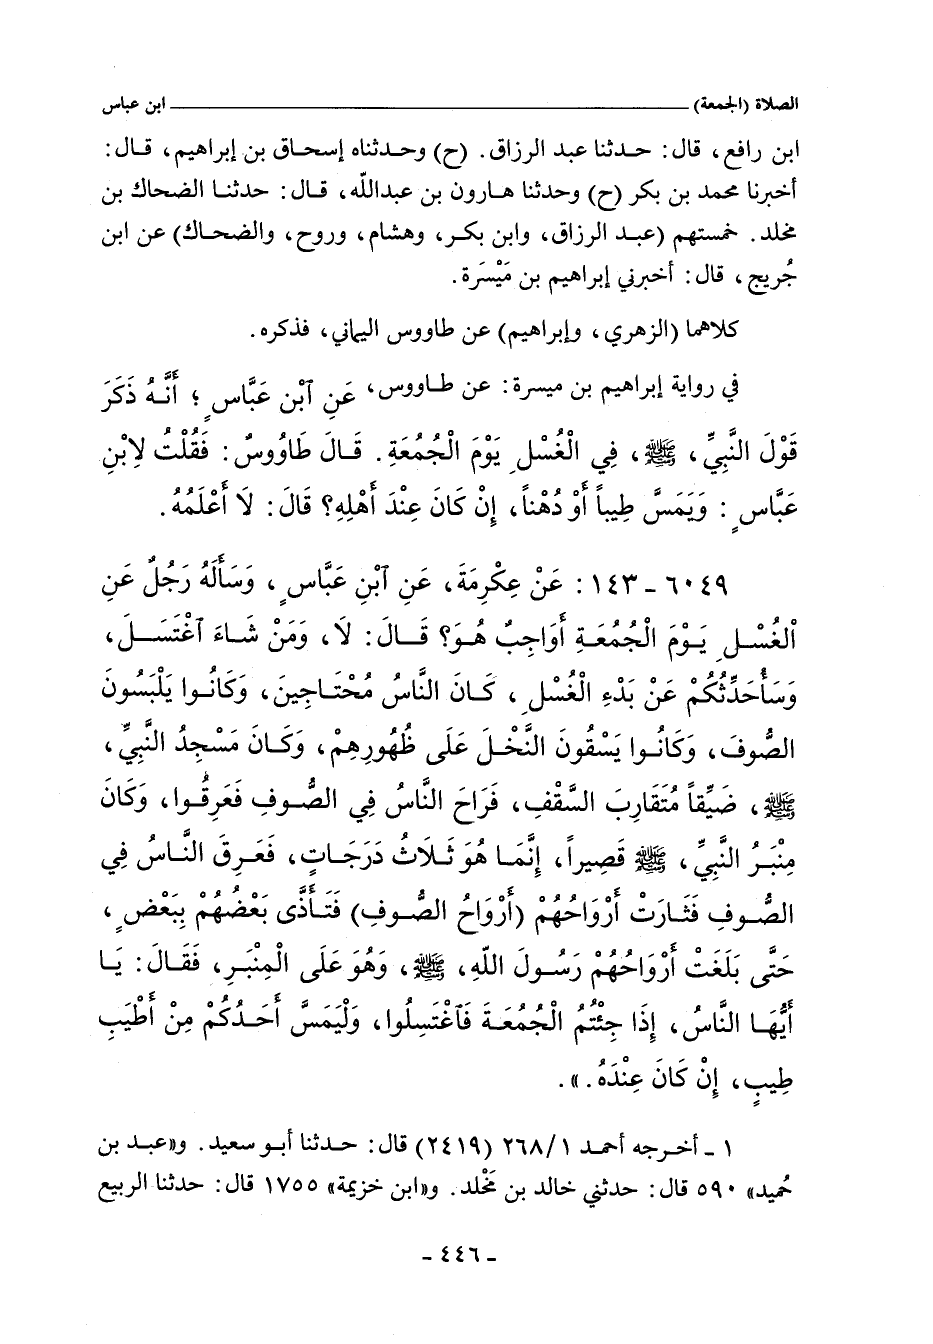 الصلاة (الجمعة) ابن عباس
ابن رافع، قال: حدثنا عبد الرزاق. (ح) وحدثناه إسحاق بن إبراهيم، قال:
أخبرنا محمد بن بكر (ح) وحدثنا هارون بن عبدالله، قال: حدثنا الضحاك بن
مخلد. خمستهم (عبد الرزاق، وابن بكر، وهشام، وروح، والضحاك) عن ابن
جُريج، قال: أخبرني إبراهيم بن مَيْسَرة.
كلاهما (الزهري، وإبراهيم) عن طاووس اليماني، فذكره.
في رواية إبراهيم بن ميسرة: عن طاووس، عَنِ ٱبْنِ عَبَّاسٍ؛ أَنَّهُ ذَكَرَ
قَوْلَ النَّبِيِّ، ﷺ، فِي الْغُسْلِ يَوْمَ الْجُمُعَةِ. قَالَ طَاوُوسٌ: فَقُلْتُ لِابْنِ
عَبَّاسٍ: وَيَمَسَّ طِيباً أَوْ دُهْناً، إِنْ كَانَ عِنْدَ أَهْلِهِ؟ قَالَ: لَا أَعْلَمُهُ.
٦٠٤٩ - ١٤٣: عَنْ عِكْرِمَةَ، عَنِ ٱبْنِ عَبَّاسٍ، وَسَأَلَهُ رَجُلٌ عَنِ
ٱلْغُسْلِ يَوْمَ الْجُمُعَةِ أَوَاجِبٌ هُوَ؟ قَالَ: لَا، وَمَنْ شَاءَ ٱغْتَسَلَ،
وَسَأُحَدِّثُكُمْ عَنْ بَدْءِ الْغُسْلِ، كَانَ النَّاسُ مُحْتَاجِينَ، وَكَانُوا يَلْبَسُونَ
الصُّوفَ، وَكَانُوا يَسْقُونَ النَّخْلَ عَلَى ظُهُورِهِمْ، وَكَانَ مَسْجِدُ النَّبِيِّ،
ﷺ، ضَيِّقاً مُتَقَارِبَ السَّقْفِ، فَرَاحَ النَّاسُ فِي الصُّوفِ فَعَرِقُوا، وَكَانَ
مِنْبَرُ النَّبِيِّ، ﷺ قَصِيراً، إِنَّمَا هُوَ ثَلَاثُ دَرَجَاتٍ، فَعَرِقَ النَّاسُ فِي
الصُّوفِ فَثَارَتْ أَرْوَاحُهُمْ (أَرْوَاحُ الصُّوفِ) فَتَأَذَّى بَعْضُهُمْ بِبَعْضٍ،
حَتَّى بَلَغَتْ أَرْوَاحُهُمْ رَسُولَ اللهِ، ﷺ، وَهُوَ عَلَى الْمِنْبَرِ، فَقَالَ: يَا
أَيُّهَا النَّاسُ، إِذَا جِئْتُمُ الْجُمُعَةَ فَٱغْتَسِلُوا، وَلْيَمَسَّ أَحَدُكُمْ مِنْ أَطْيَبِ
طِيبٍ، إِنْ كَانَ عِنْدَهُ.».
١ - أخرجه أحمد ٢٦٨/١ (٢٤١٩) قال: حدثنا أبو سعيد. و«عبد بن
حُميد» ٥٩٠ قال: حدثني خالد بن مَخْلد. و«ابن خزيمة» ١٧٥٥ قال: حدثنا الربيع
- ٤٤٦ -